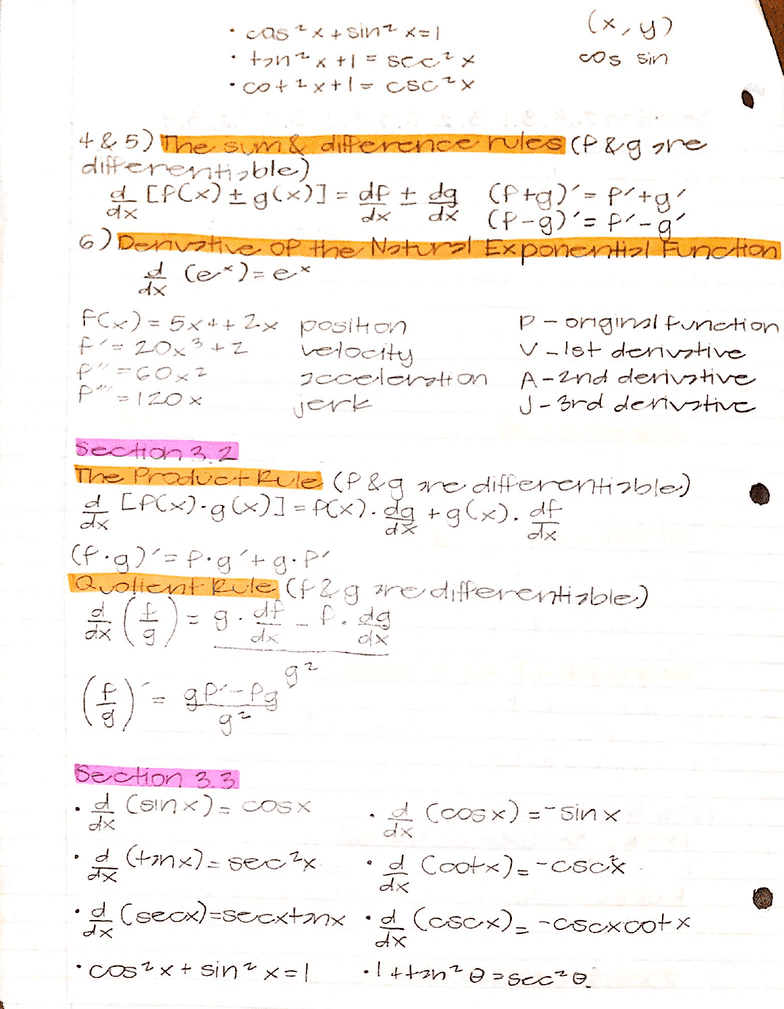 · cos²x + sin²x = 1 (x, y)
· tan²x + 1 = sec²x cos sin
· cot²x + 1 = csc²x
4 & 5) The sum & difference rules (f & g are
differentiable)
d/dx [f(x) ± g(x)] = df/dx ± dg/dx (f+g)' = f' + g'
(f-g)' = f' - g'
6) Derivative of the Natural Exponential Function
d/dx (eˣ) = eˣ
f(x) = 5x4 + 2x position P - original function
f' = 20x³ + 2 velocity V - 1st derivative
f'' = 60x² acceleration A - 2nd derivative
f''' = 120x jerk J - 3rd derivative
Section 3.2
The Product Rule (f & g are differentiable)
d/dx [f(x) · g(x)] = f(x) · dg/dx + g(x) · df/dx
(f · g)' = f · g' + g · f'
Quotient Rule (f & g are differentiable)
d/dx (f/g) = (g · df/dx - f · dg/dx) / g²
(f/g)' = (gf' - fg) / g²
Section 3.3
· d/dx (sinx) = cosx · d/dx (cosx) = -sinx
· d/dx (tanx) = sec²x · d/dx (cotx) = -csc²x
· d/dx (secx) = secxtanx · d/dx (cscx) = -cscxcotx
· cos²x + sin²x = 1 · 1 + tan²θ = sec²θ.